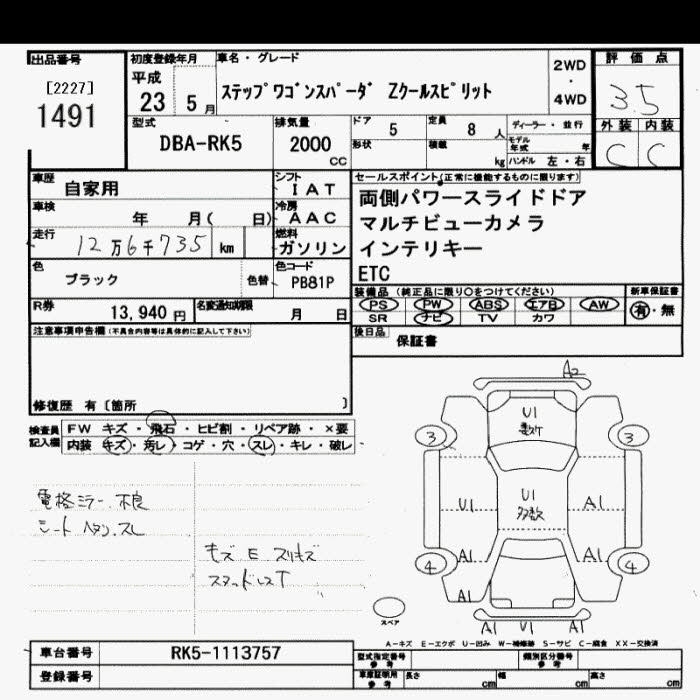 出品番号
[2227]
1491
初度登録年月
平成
23 5 月
車名・グレード
ステップワゴンスパーダ Zクールスピリット
2WD
・
4WD
評価点
3.5
外装 内装
C C
型式
DBA-RK5
排気量
2000
CC
ドア 5
形状
定員 8 人
積載 kg
ディーラー・並行
モデル年式 年
ハンドル 左・右
車歴
自家用
シフト
IAT
車検
年 月( 日)
冷房
AAC
走行
12万6千735 km
燃料
ガソリン
色
ブラック
色替
色コード
PB81P
R券
13,940 円
名変通知期限
月 日
セールスポイント(正常に機能するものに限ります)
両側パワースライドドア
マルチビューカメラ
インテリキー
ETC
装備品(純正品に限り○をつけてください)
PS PW ABS エアB AW
SR ナビ TV カワ
新車保証書
有・無
後日品
保証書
注意事項申告欄(不具合内容等は具体的に記入して下さい)
修復歴 有〔箇所 〕
検査員記入欄
FW キズ・飛石・ヒビ割・リペア跡・×要
内装 キズ・汚レ・コゲ・穴・スレ・キレ・破レ
電格ミラー不良
シート ヘタリ.スレ
キズ E スリキズ
スタッドレスT
A2
U1
3
3
U1
多数
U1
A1
4
A1
A1
4
A1
A1
U1
A1
スペア
A−キズ E−エクボ U−凹み W−補修跡 S−サビ C−腐食 XX−交換済
車台番号
RK5-1113757
登録番号
型式指定番号
参考
類別区分番号
参考
車庫証明用
参考
長さ cm
幅 cm
高さ cm